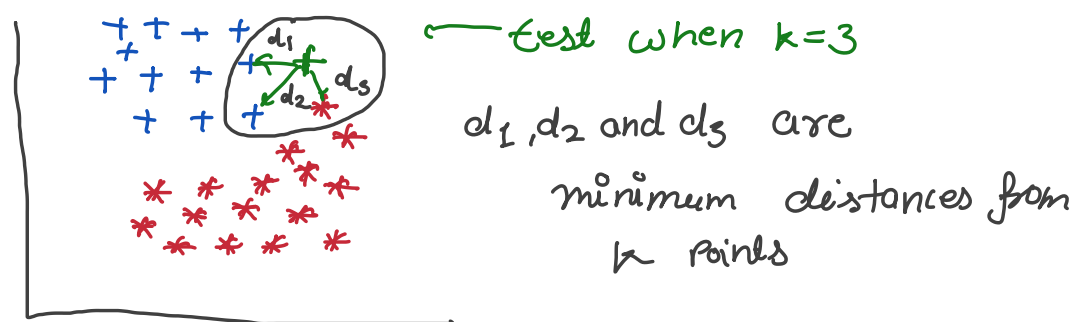 d1
d2
d3
test when k=3
d1,d2 and d3 are
minimum distances from
k points